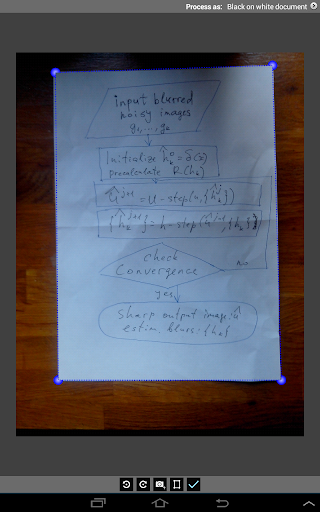 Process as: Black on white document
input blurred
noisy images
Initialize ĥₖ⁰ = δ(x)
precalculate R(hₖ)
û^{j+1} = u - step(
h - step(
check
Convergence
No
yes
Sharp output image: û
estim. blurs: